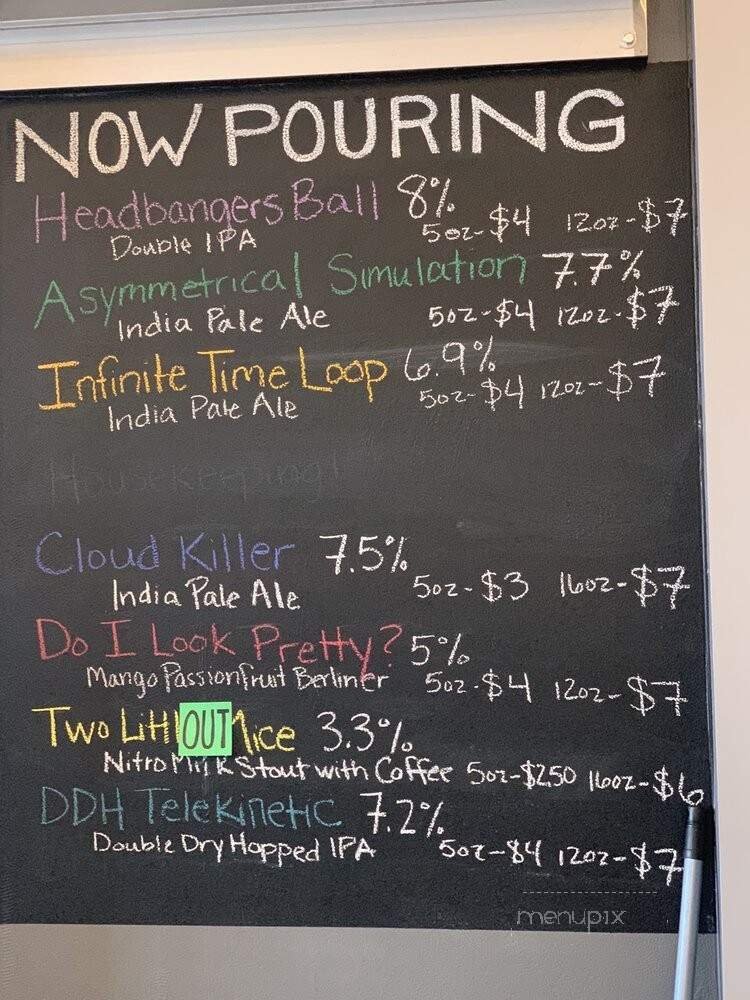 NOW POURING
Headbangers Ball 8%
Double IPA 5oz-$4 12oz-$7
Asymmetrical Simulation 7.7%
India Pale Ale 5oz-$4 12oz-$7
Infinite Time Loop 6.9%
India Pale Ale 5oz-$4 12oz-$7
Housekeeping!
Cloud Killer 7.5%
India Pale Ale 5oz-$3 16oz-$7
Do I Look Pretty? 5%
Mango Passionfruit Berliner 5oz-$4 12oz-$7
Two Littl OUT Mice 3.3%
Nitro Milk Stout with Coffee 5oz-$250 16oz-$6
DDH Telekinetic 7.2%
Double Dry Hopped IPA 5oz-$4 12oz-$7
menupix